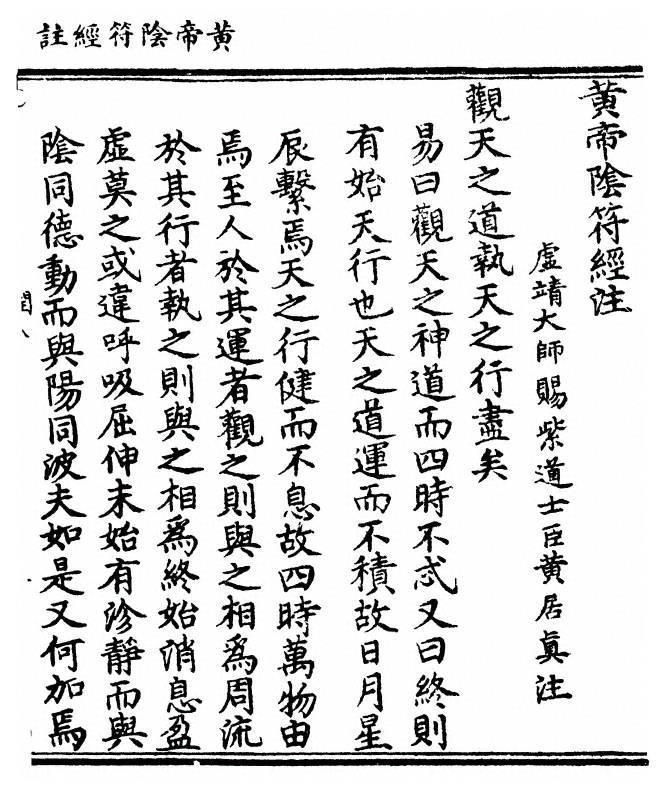 黄帝陰符經註
黄帝陰符經注
虛靖大師賜紫道士臣黄居眞注
觀天之道執天之行盡矣
易曰觀天之神道而四時不忒又曰終則
有始天行也天之道運而不積故日月星
辰繫焉天之行健而不息故四時萬物由
焉至人於其運者觀之則與之相爲周流
於其行者執之則與之相爲終始消息盈
虛莫之或違呼吸屈伸未始有沴靜而與
陰同德動而與陽同波夫如是又何加焉